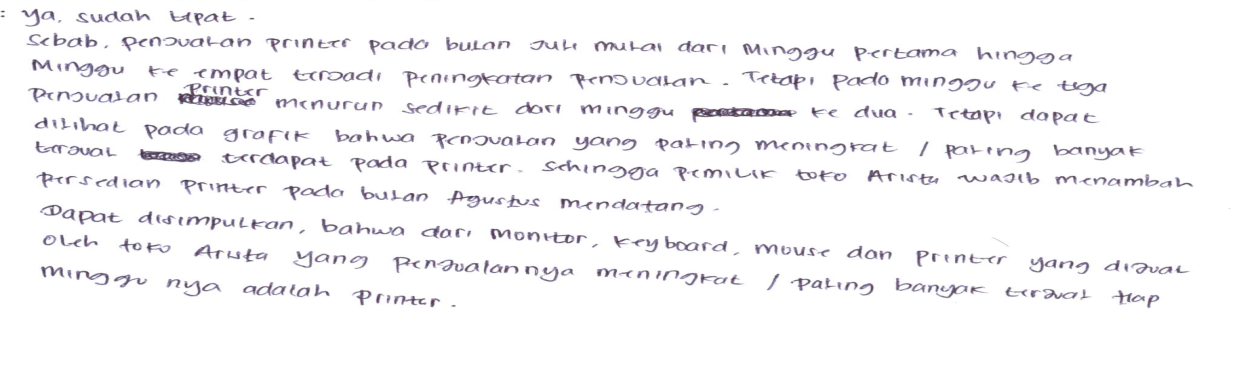 : Ya, sudah tepat.
Sebab, penjualan printer pada bulan Juli mulai dari Minggu pertama hingga
Minggu ke empat terjadi peningkatan penjualan. Tetapi pada minggu ke tiga
penjualan Printer menurun sedikit dari minggu ke dua. Tetapi dapat
dilihat pada grafik bahwa penjualan yang paling meningkat / paling banyak
terjual terdapat pada printer. Sehingga pemilik toko Arista wajib menambah
persedian printer pada bulan Agustus mendatang.
Dapat disimpulkan, bahwa dari monitor, keyboard, mouse dan printer yang dijual
oleh toko Arista yang penjualannya meningkat / paling banyak terjual tiap
minggu nya adalah printer.